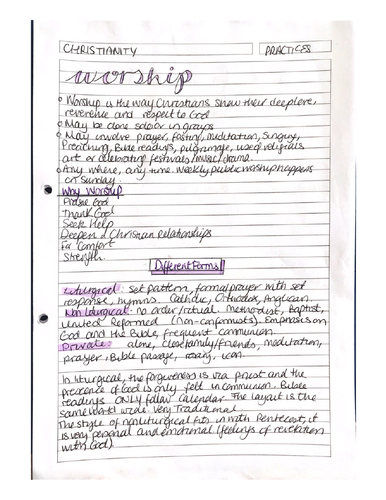 CHRISTIANITY
PRACTICES
worship
Worship is the way Christians show their deep love,
reverence and respect to God
May be done solo or in groups
May involve prayer, fasting, meditation, singing,
Preaching, Bible readings, pilgrimage, use of religious
art or celebrating festivals/music/drama.
Any where, any time. Weekly public worship happens
on Sunday.
Why Worship
Praise God
Thank God
Seek Help
Deepen Christian Relationships
For Comfort
Strength.
Different Forms
Liturgical: set pattern, formal prayer with set
response, hymns. Catholic, Orthodox, Anglican.
Non liturgical: no order/ritual. Methodist, Baptist,
United Reformed (non-conformists). Emphasis on
God and the Bible, Frequent communion
Private: alone, close family/friends, meditation,
prayer, Bible passage, rosary, icon.
In liturgical, the forgiveness is via priest and the
presence of God is only felt in communion. Bible
readings ONLY follow calendar. The layout is the
same world wide. Very Traditional.
The style of non liturgical fits in with Pentecost, it
is very personal and emotional (feelings of revelation
with God)